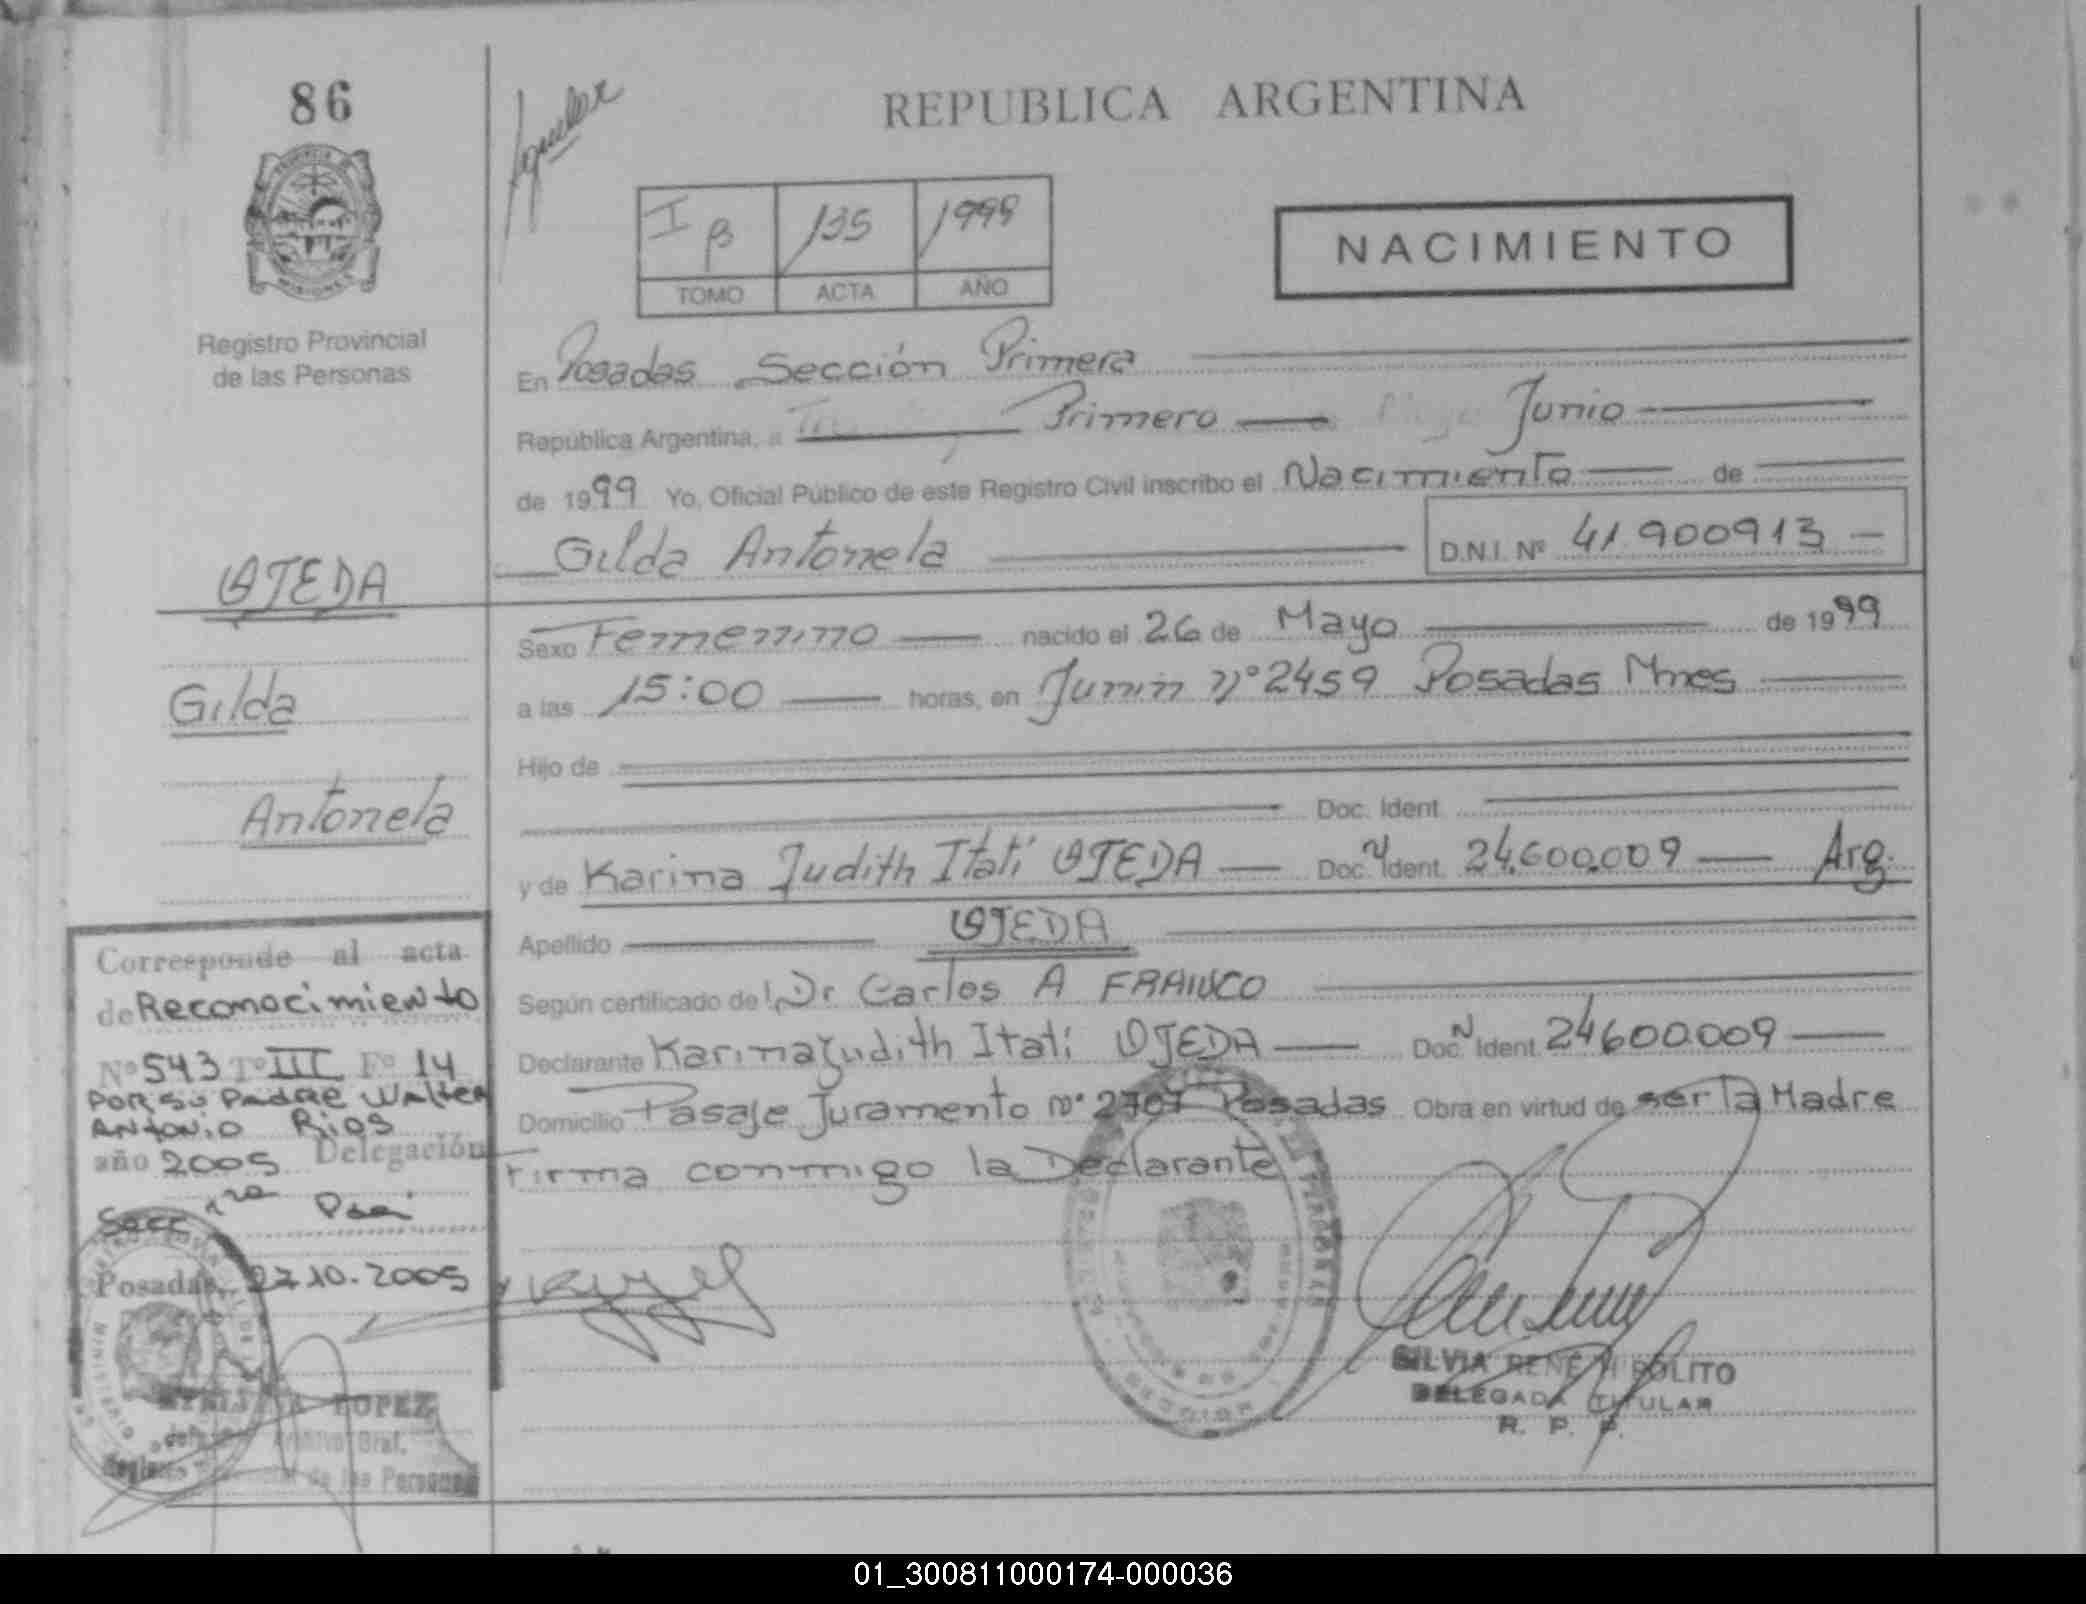 86
REPUBLICA ARGENTINA
I B 135 1999
TOMO ACTA AÑO
NACIMIENTO
Registro Provincial
de las Personas
En Posadas Sección Primera
República Argentina, a Primero Junio
de 1999 Yo, Oficial Público de este Registro Civil inscribo el Nacimiento de
Gilda Antonela D.N.I. Nº 41.900913
Sexo Femenino nacido el 26 de Mayo de 1999
a las 15:00 horas, en Junin Nº 2459 Posadas Mnes
Hijo de
Doc. Ident.
y de Karina Judith Itatí OJEDA Doc. N Ident. 24.600.009 Arg.
Apellido OJEDA
Según certificado del Dr Carlos A FRANCO
Declarante Karina Judith Itatí OJEDA Doc. N Ident. 24600.009
Domicilio Pasaje Juramento Nº Posadas Obra en virtud de ser la Madre
Firma conmigo la Declarante
SILVIA RENE HIPOLITO
DELEGADA TITULAR
R. P. P.
OJEDA
Gilda
Antonela
Corresponde al acta
de Reconocimiento
Nº 543 Tº III Fº 14
POR SU PADRE WALTER
ANTONIO RIOS
año 2005 Delegación
Secc 1ra Pdas
Posadas, 27.10.2005
LOPEZ
Archivo Gral.
de las Personas
01_300811000174-000036